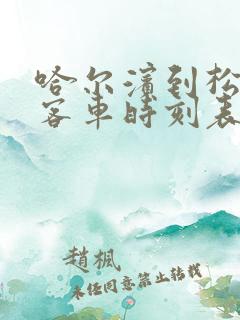 哈尔滨到松
客车时刻表
趙楓
未经同意禁止转载